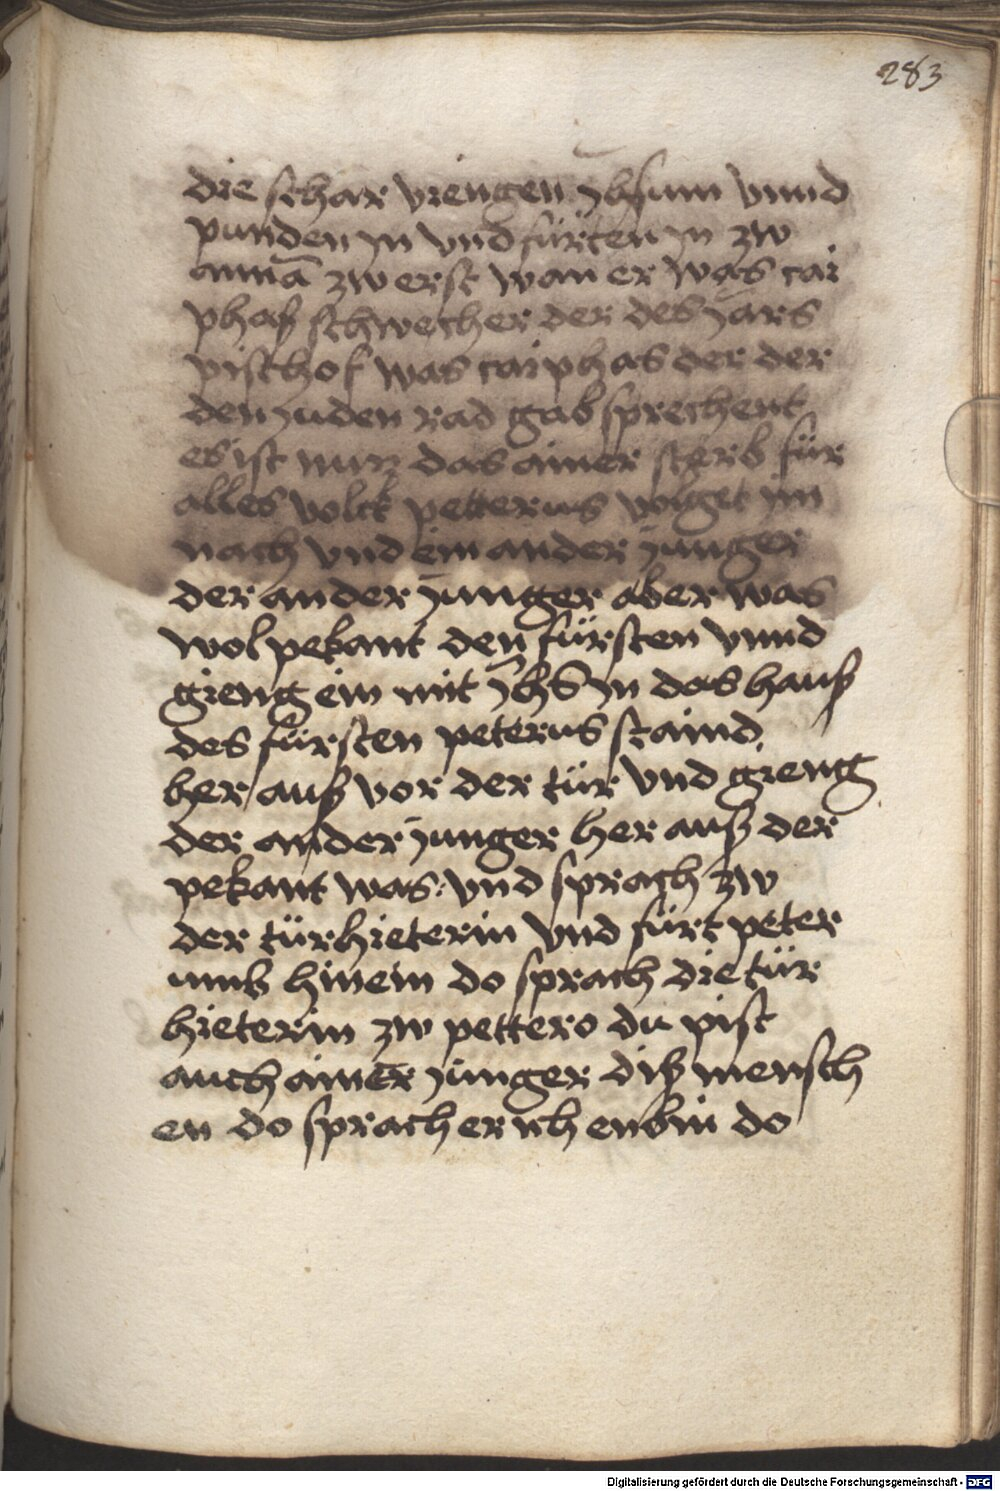 283
die schar viengen jhesum vnnd
punden jn vnd fürten jn zw
annā zw erst wan er was cai
phaß schwecher der des jars
pischof was caiphas der der
den juden rad gab sprechent
es ist nucz das ainer sterb für
alles volck petterus volget im
nach vnd ein ander junger
der ander junger aber was
wol pekant den fürsten vnnd
gieng ein mit jhs jn das hauß
des fürsten peterus staind
her auß vor der tür vnd gieng
der ander junger her auß der
pekant was vnd sprach zw
der türhieterin vnd fürt peter
umb hinein do sprach die tür
hieterin zw pettero du pist
auch ainer junger diß mensch
en do sprach er ich enbin do
Digitalisierung gefördert durch die Deutsche Forschungsgemeinschaft - DFG